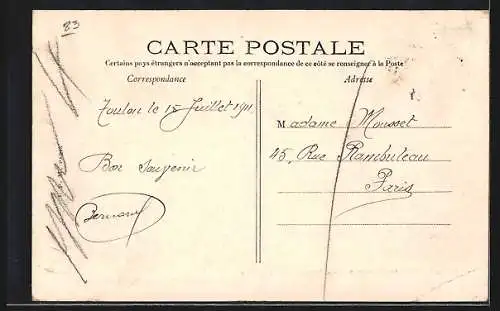 83
CARTE POSTALE
Certains pays étrangers n'acceptant pas la correspondance de ce côté se renseigner à la Poste
Correspondance
Adresse
Toulon le 15 Juillet 1911
Bon Souvenir
Madame Mousset
45, Rue Rambuteau
Paris